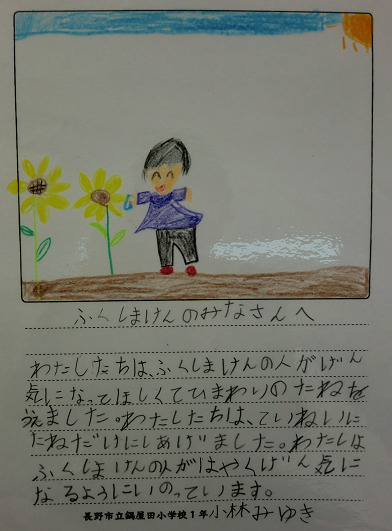 ふくしまけんのみなさんへ
わたしたちは、ふくしまけんの人がげん
気になってほしくてひまわりのたねを
うえました。わたしたちは、ていねいに
たねだけにしあげました。わたしは
ふくしまけんの人がはやくげん気に
なるようにいのっています。
長野市立鍋屋田小学校1年 小林みゆき